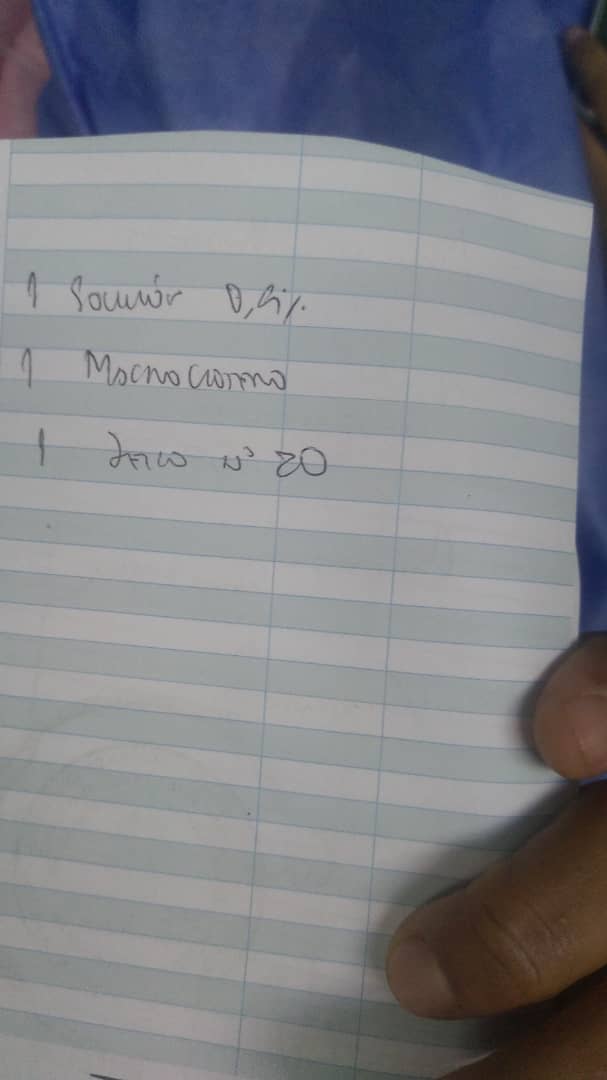 1 Solución 0,9%
1 Macrogotero
1 Jelco N° 20